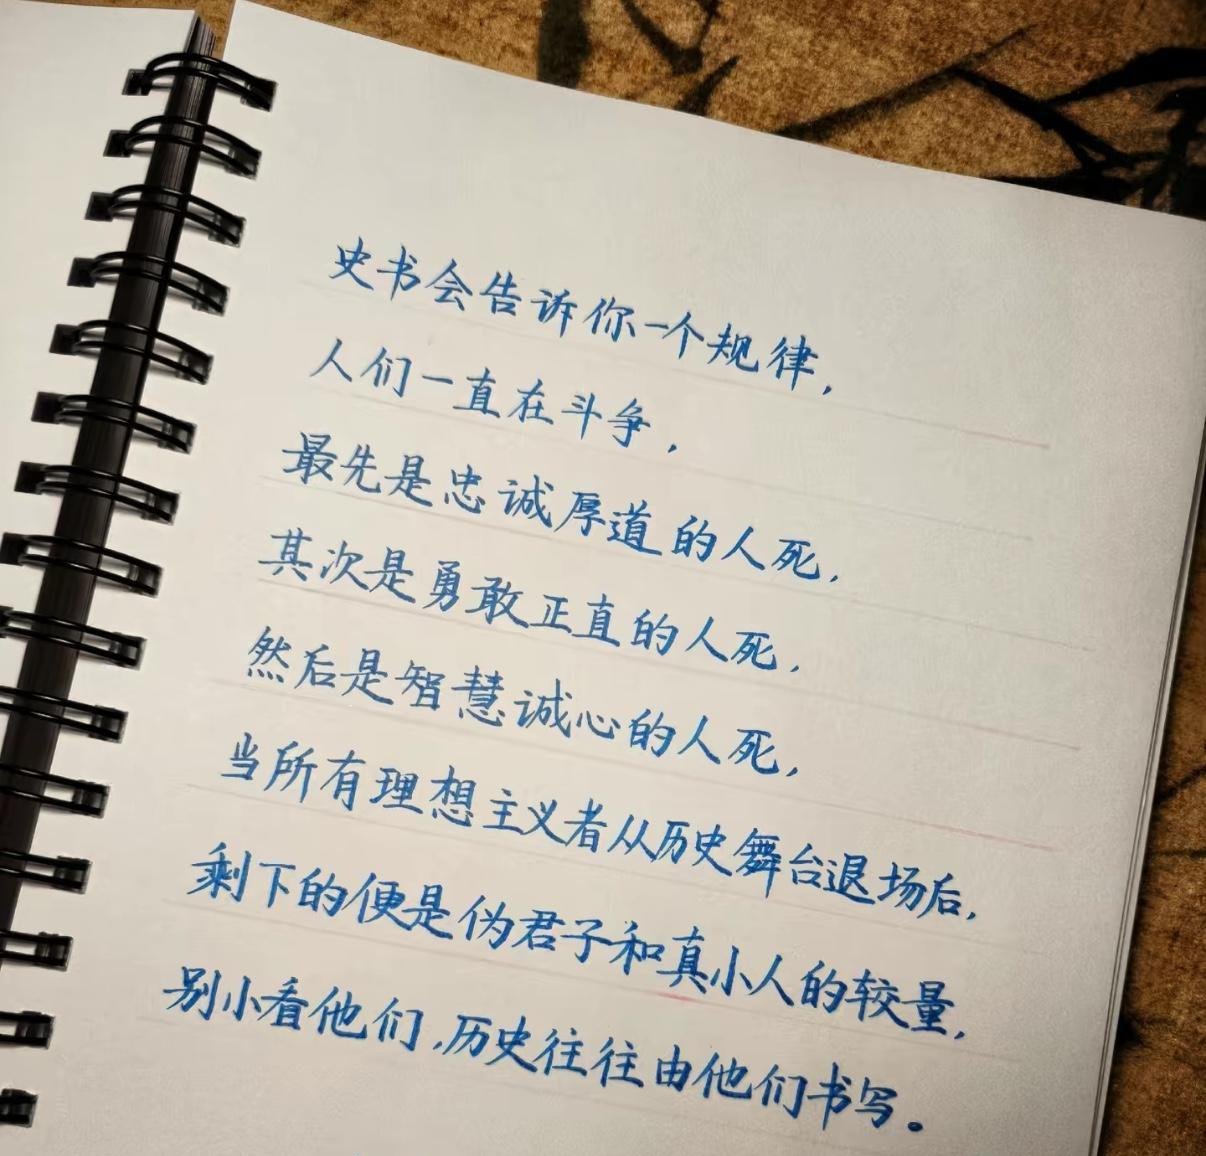 史书会告诉你一个规律，
人们一直在斗争，
最先是忠诚厚道的人死，
其次是勇敢正直的人死，
然后是智慧诚心的人死，
当所有理想主义者从历史舞台退场后，
剩下的便是伪君子和真小人的较量，
别小看他们，历史往往由他们书写。